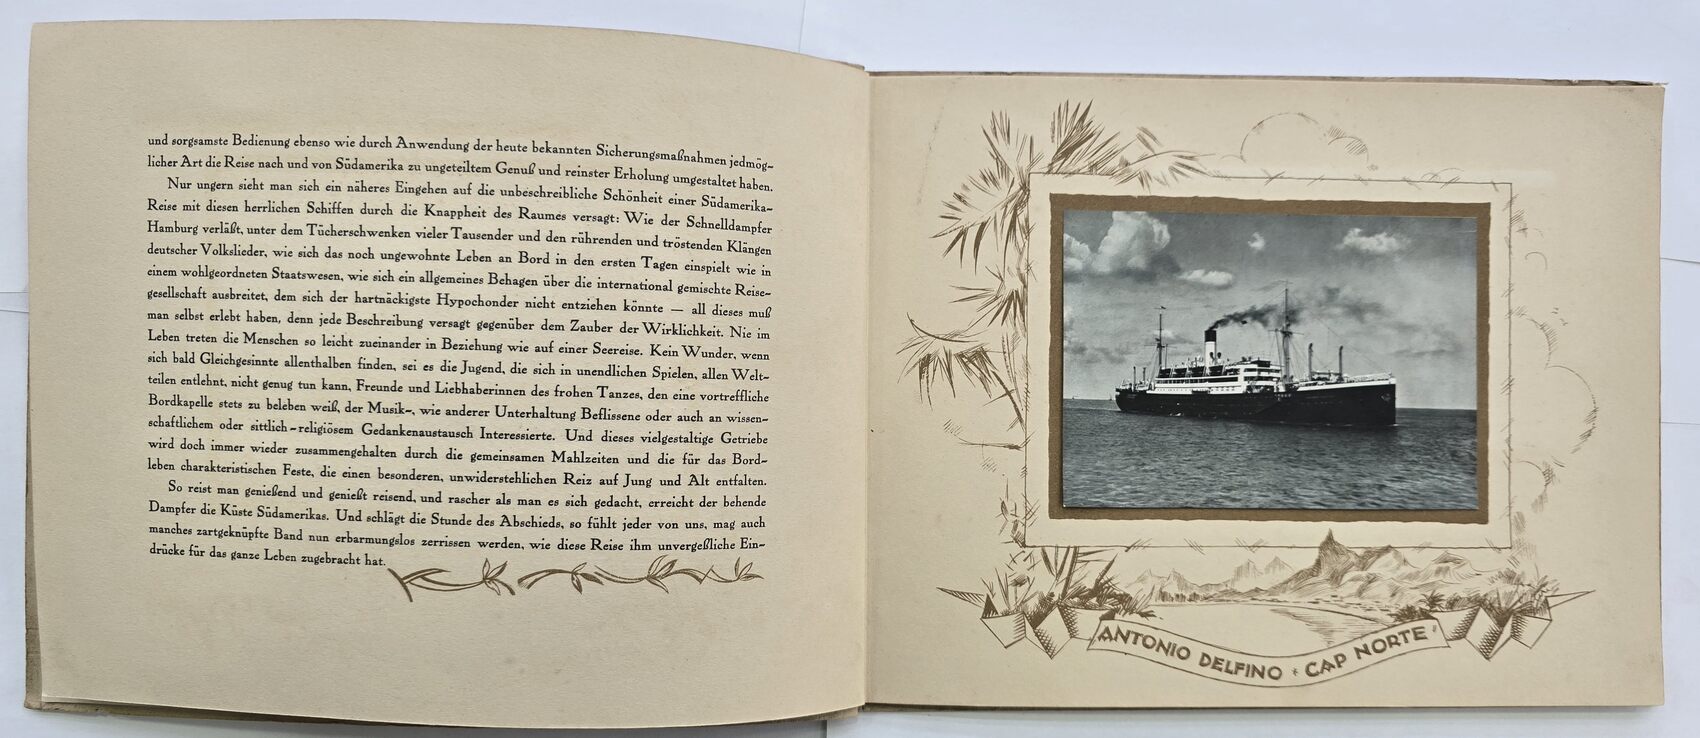 und sorgsamste Bedienung ebenso wie durch Anwendung der heute bekannten Sicherungsmaßnahmen jedmög-
licher Art die Reise nach und von Südamerika zu ungeteiltem Genuß und reinster Erholung umgestaltet haben.
Nur ungern sieht man sich ein näheres Eingehen auf die unbeschreibliche Schönheit einer Südamerika-
Reise mit diesen herrlichen Schiffen durch die Knappheit des Raumes versagt: Wie der Schnelldampfer
Hamburg verläßt, unter dem Tücherschwenken vieler Tausender und den rührenden und tröstenden Klängen
deutscher Volkslieder, wie sich das noch ungewohnte Leben an Bord in den ersten Tagen einspielt wie in
einem wohlgeordneten Staatswesen, wie sich ein allgemeines Behagen über die international gemischte Reise-
gesellschaft ausbreitet, dem sich der hartnäckigste Hypochonder nicht entziehen könnte — all dieses muß
man selbst erlebt haben, denn jede Beschreibung versagt gegenüber dem Zauber der Wirklichkeit. Nie im
Leben treten die Menschen so leicht zueinander in Beziehung wie auf einer Seereise. Kein Wunder, wenn
sich bald Gleichgesinnte allenthalben finden, sei es die Jugend, die sich in unendlichen Spielen, allen Welt-
teilen entlehnt, nicht genug tun kann, Freunde und Liebhaberinnen des frohen Tanzes, den eine vortreffliche
Bordkapelle stets zu beleben weiß, der Musik-, wie anderer Unterhaltung Beflissene oder auch an wissen-
schaftlichem oder sittlich-religiösem Gedankenaustausch Interessierte. Und dieses vielgestaltige Getriebe
wird doch immer wieder zusammengehalten durch die gemeinsamen Mahlzeiten und die für das Bord-
leben charakteristischen Feste, die einen besonderen, unwiderstehlichen Reiz auf Jung und Alt entfalten.
So reist man genießend und genießt reisend, und rascher als man es sich gedacht, erreicht der behende
Dampfer die Küste Südamerikas. Und schlägt die Stunde des Abschieds, so fühlt jeder von uns, mag auch
manches zartgeknüpfte Band nun erbarmungslos zerrissen werden, wie diese Reise ihm unvergeßliche Ein-
drücke für das ganze Leben zugebracht hat.
ANTONIO DELFINO * CAP NORTE